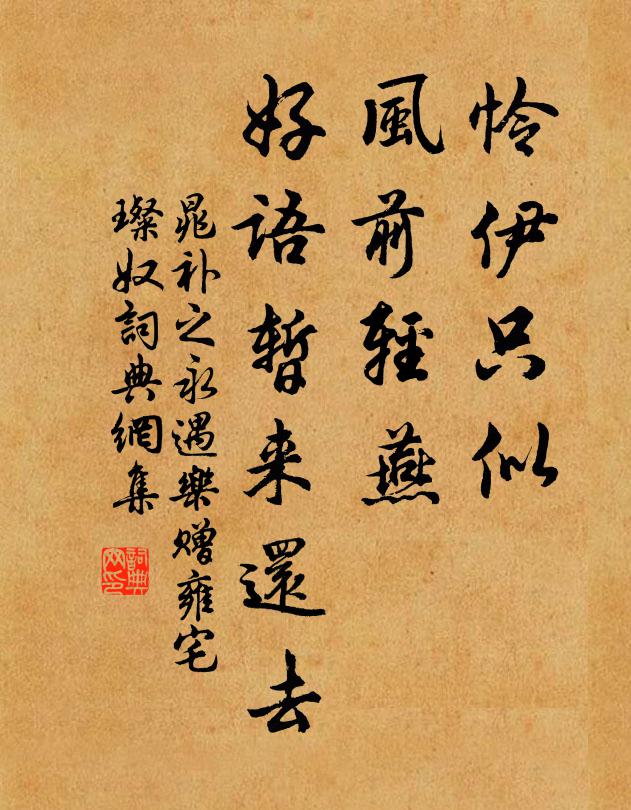 怜伊只似
風前輕燕
好語暫来還去
晁补之永遇樂赠雍宅
璨奴詞典網集
詞典网印